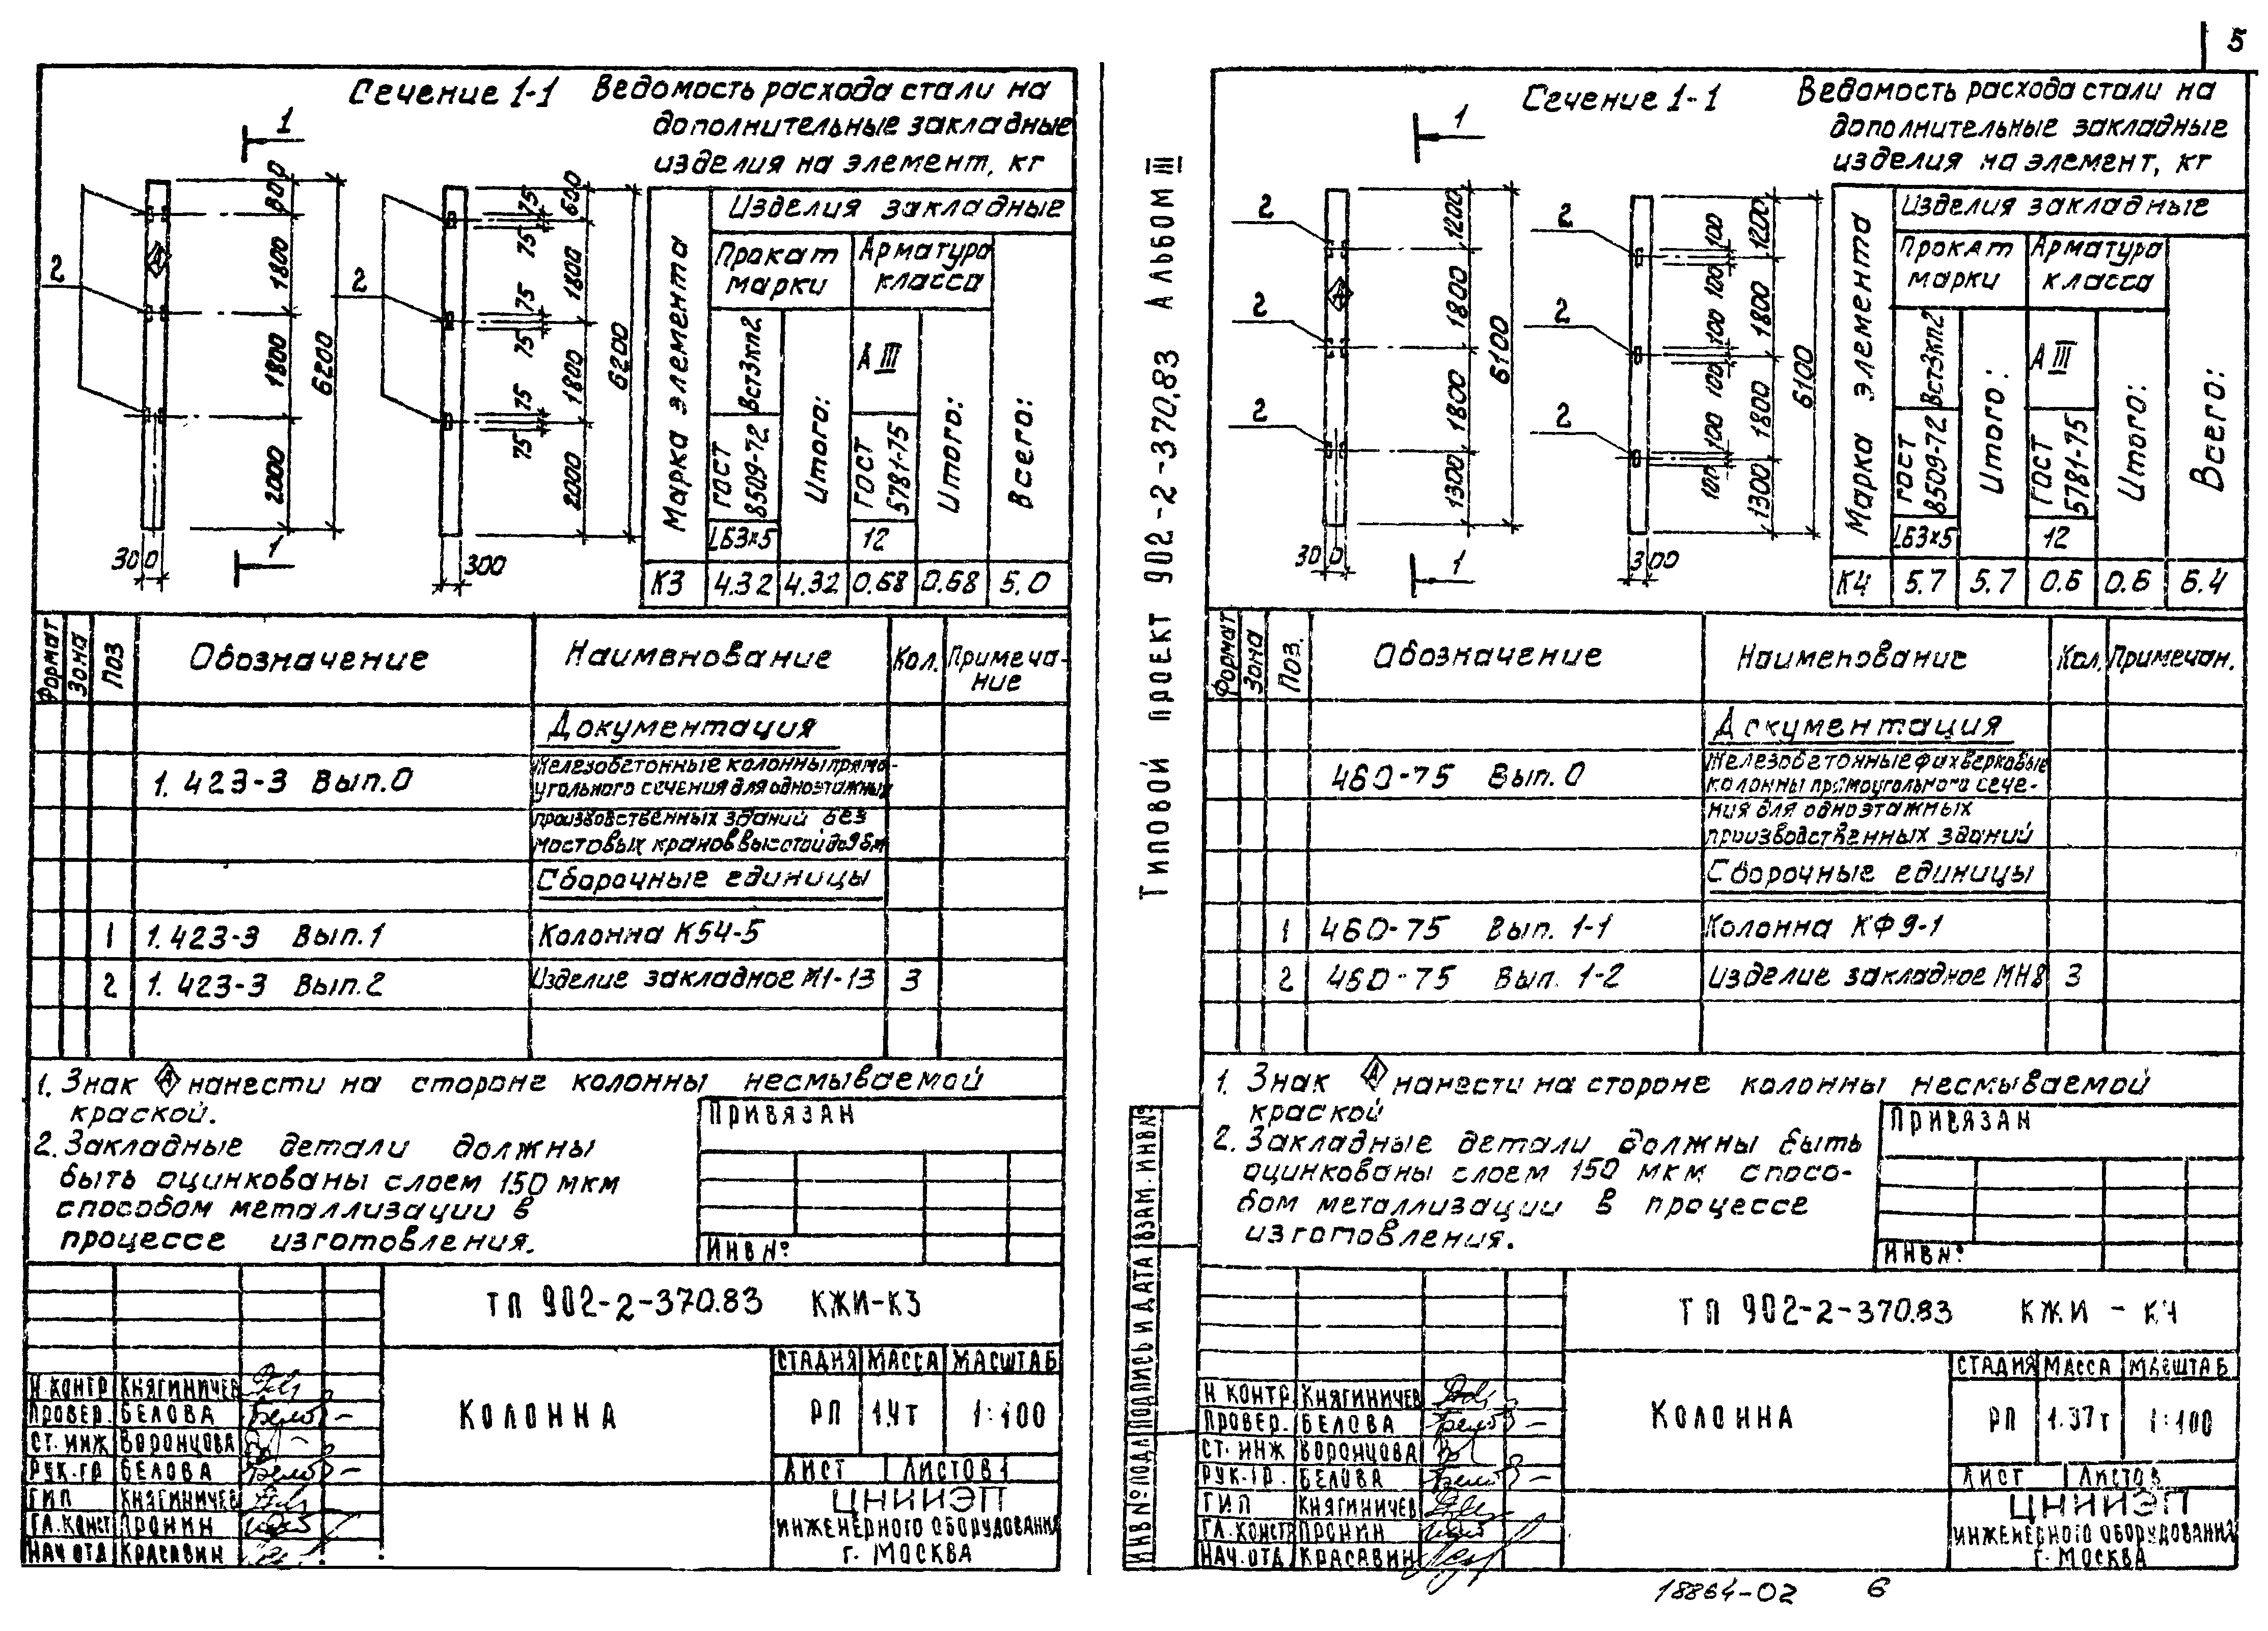 5
Сечение 1-1
Ведомость расхода стали на
дополнительные закладные
изделия на элемент, кг
1
2
800
1800
1800
2000
6200
300
1
2
75
75
75
75
75
75
600
1800
1800
2000
6200
300
Марка элемента
Изделия закладные
Прокат марки
Арматура класса
Вст3кп2
ГОСТ 8509-72
L63×5
Итого:
А III
ГОСТ 5781-75
12
Итого:
Всего:
К3 4.32 4.32 0.68 0.68 5.0
Формат Зона Поз Обозначение Наименование Кол. Примечание
Документация
1.423-3 Вып.0 Железобетонные колонны прямо-
угольного сечения для одноэтажных
производственных зданий без
мостовых кранов высотой до 9.6м
Сборочные единицы
1 1.423-3 Вып.1 Колонна К54-5
2 1.423-3 Вып.2 Изделие закладное М1-13 3
1. Знак А нанести на стороне колонны несмываемой
краской.
2. Закладные детали должны
быть оцинкованы слоем 150 мкм
способом металлизации в
процессе изготовления.
ПРИВЯЗАН
ИНВ №
ТП 902-2-370.83 КЖИ-К3
Н.КОНТР КНЯГИНИЧЕВ
ПРОВЕР. БЕЛОВА
СТ. ИНЖ ВОРОНЦОВА
РУК.ГР БЕЛОВА
ГИП КНЯГИНИЧЕВ
ГЛ.КОНСТ ПРОНИН
НАЧ ОТД КРАСАВИН
КОЛОННА
СТАДИЯ МАССА МАСШТАБ
РП 1.4т 1:100
ЛИСТ ЛИСТОВ 1
ЦНИИЭП
ИНЖЕНЕРНОГО ОБОРУДОВАНИЯ
г. МОСКВА
Типовой проект 902-2-370.83 Альбом III
Сечение 1-1
Ведомость расхода стали на
дополнительные закладные
изделия на элемент, кг
1
2
2
2
1200
1800
1800
1300
6100
300
1
2
2
2
100
100
100
100
100
100
1200
1800
1800
1300
6100
300
Марка элемента
Изделия закладные
Прокат марки
Арматура класса
Вст3кп2
ГОСТ 8509-72
L63×5
Итого:
А III
ГОСТ 5781-75
12
Итого:
Всего:
К4 5.7 5.7 0.6 0.6 6.4
Формат Зона Поз. Обозначение Наименование Кол. Примечан.
Документация
460-75 Вып. 0 Железобетонные фахверковые
колонны прямоугольного сече-
ния для одноэтажных
производственных зданий
Сборочные единицы
1 460-75 Вып. 1-1 Колонна КФ9-1
2 460-75 Вып. 1-2 Изделие закладное МН8 3
1. Знак А нанести на стороне колонны несмываемой
краской
2. Закладные детали должны быть
оцинкованы слоем 150 мкм спосо-
бом металлизации в процессе
изготовления.
ПРИВЯЗАН
ИНВ №
ИНВ № ПОДЛ ПОДПИСЬ И ДАТА ВЗАМ. ИНВ №
ТП 902-2-370.83 КЖИ - К4
Н КОНТР КНЯГИНИЧЕВ
ПРОВЕР. БЕЛОВА
СТ. ИНЖ ВОРОНЦОВА
РУК.ГР. БЕЛОВА
ГИП КНЯГИНИЧЕВ
ГЛ.КОНСТР ПРОНИН
НАЧ.ОТД КРАСАВИН
КОЛОННА
СТАДИЯ МАССА МАСШТАБ
РП 1.37т 1:100
ЛИСТ ЛИСТОВ
ЦНИИЭП
ИНЖЕНЕРНОГО ОБОРУДОВАНИЯ
г. МОСКВА
18864-02 6